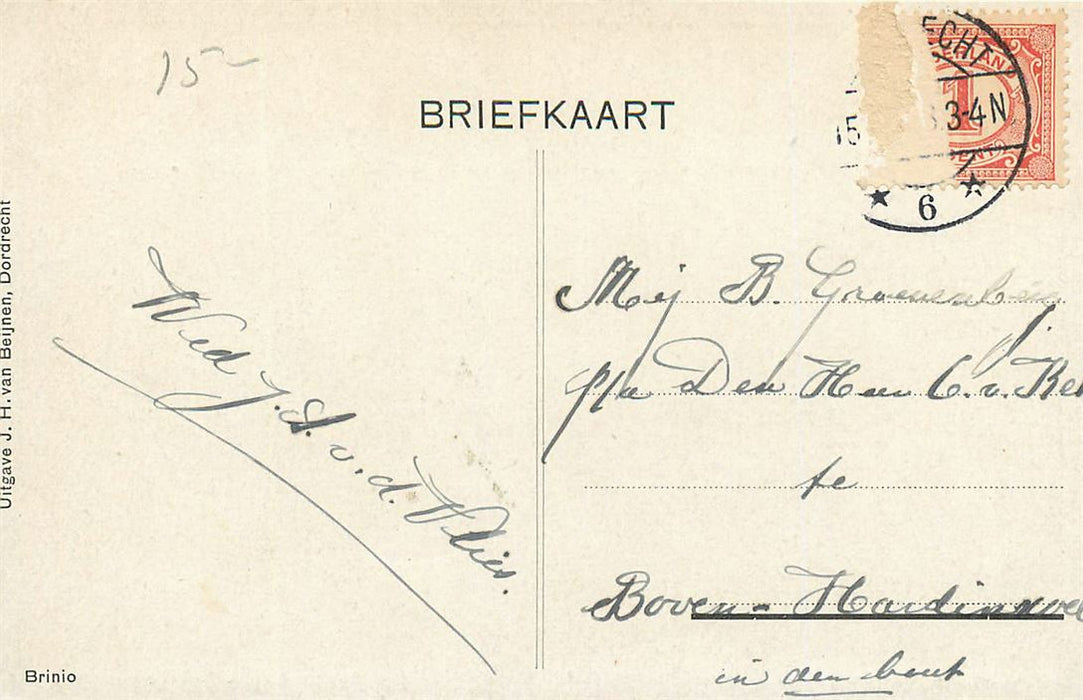 15-
BRIEFKAART
ECHT
NEDERLAND
1
CENT
15 3-4N
6
Uitgave J. H. van Beijnen, Dordrecht
Wed J. A. v. d. Vlies.
Mej B.
p/a Den Heer C. v.
te
Boven-Hardinxvel
in den bout
Brinio